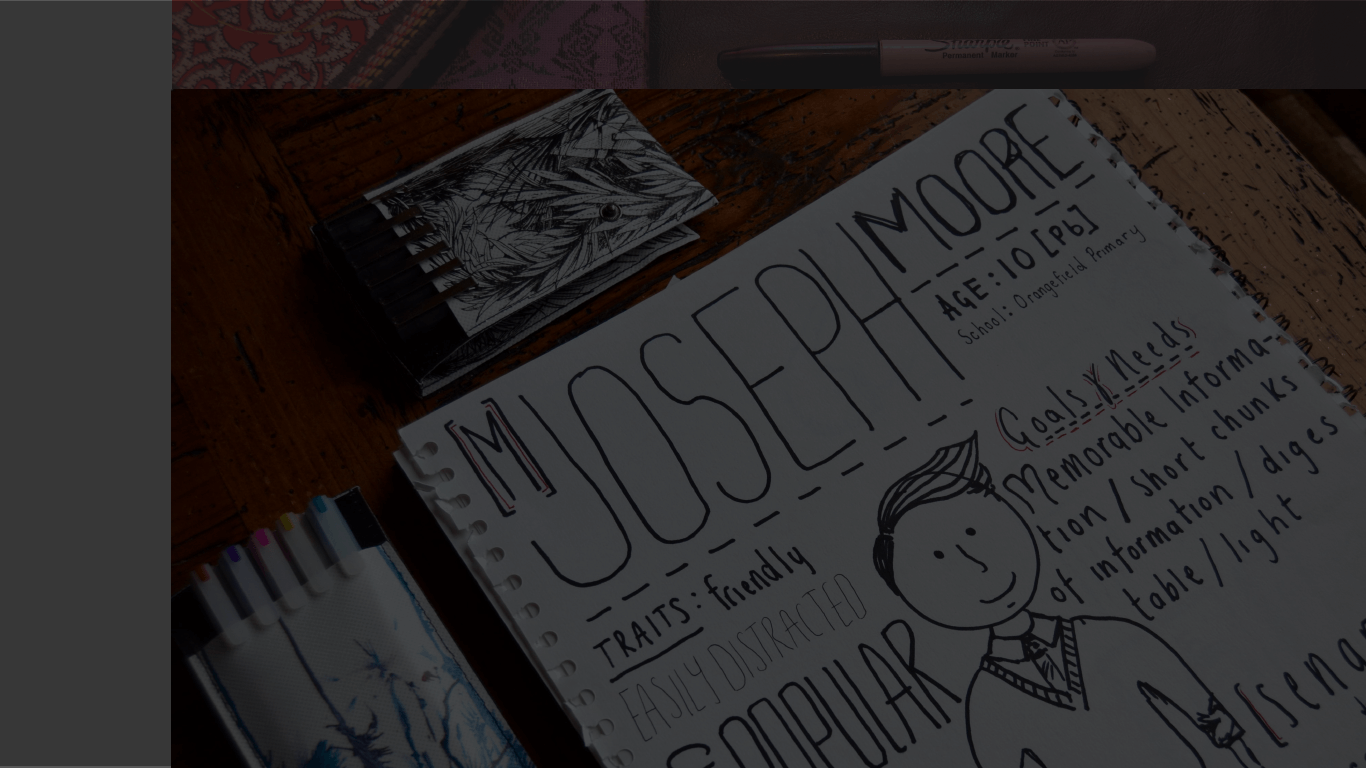 Sharpie.
Permanent Marker
[M] JOSEPH MOORE
AGE: 10 [P6]
School: Orangefield Primary
Goals & Needs
Memorable Informa-
tion / short chunks
of information / diges
table / light
TRAITS: friendly
EASILY DISTRACTED
POPULAR